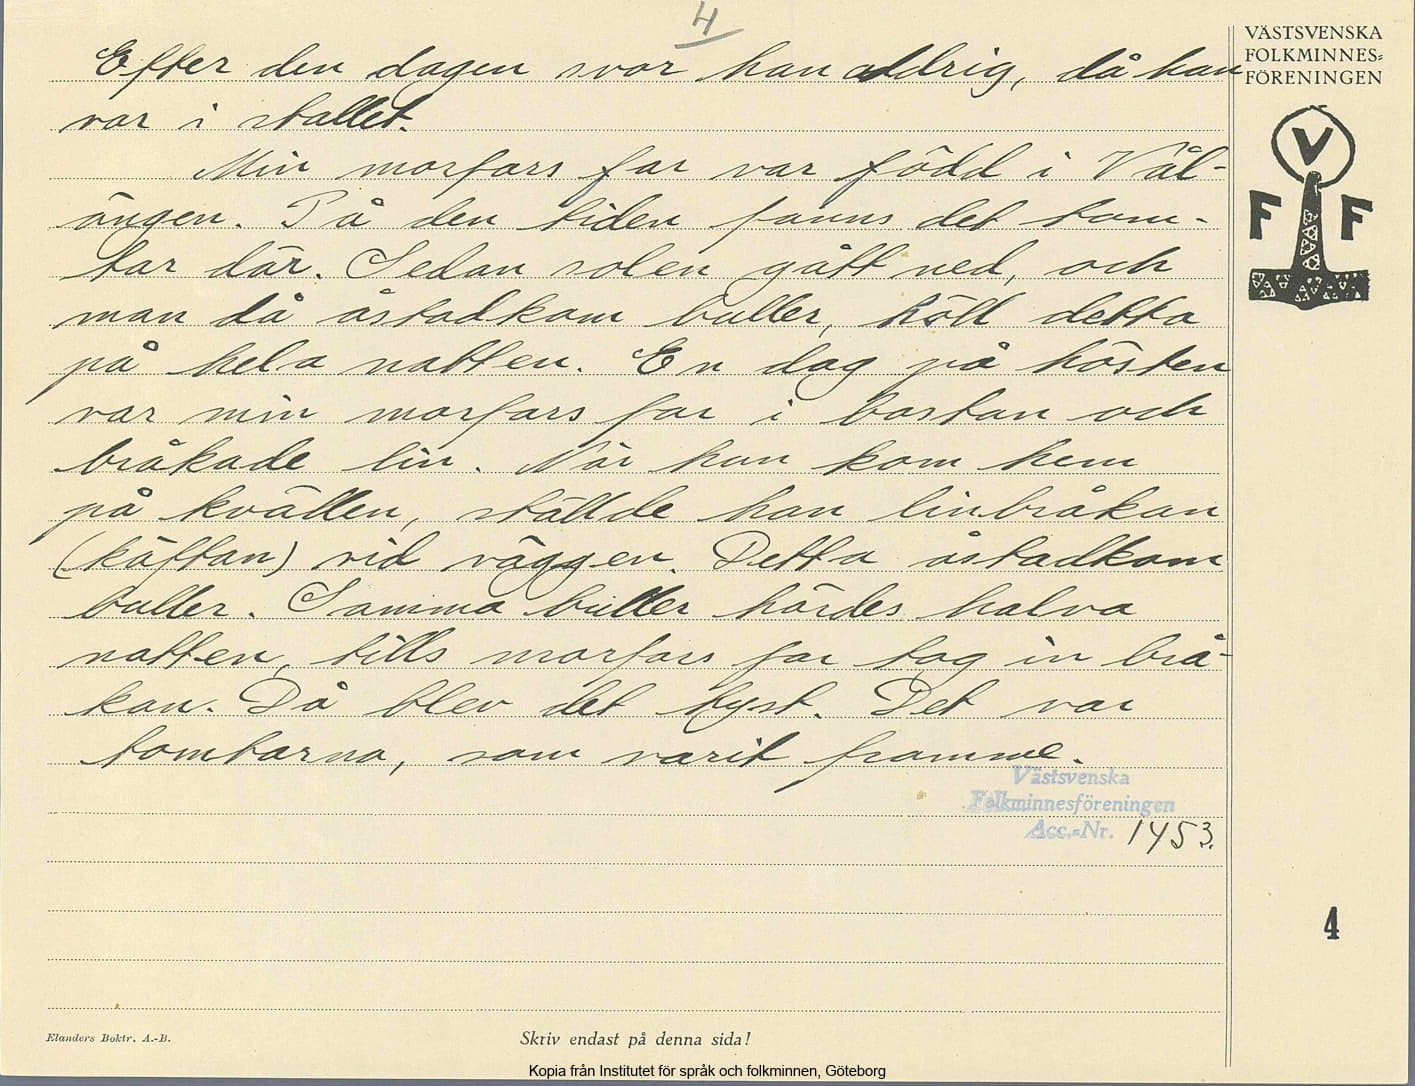 4
VÄSTSVENSKA
FOLKMINNES=
FÖRENINGEN
V
F F
Efter den dagen svor han aldrig, då han
var i stallet.
Min morfars far var född i Vål-
ängen. På den tiden fanns det tom-
tar där. Sedan solen gått ned, och
man då åstadkom buller, höll detta
på hela natten. En dag på hösten
var min morfars far i bastan och
bråkade lin. När han kom hem
på kvällen, ställde han linbråkan
(käftan) vid väggen. Detta åstadkom
buller. Samma buller hördes halva
natten, tills morfars far tog in brå-
kan. Då blev det tyst. Det var
tomtarna, som varit framme.
Västsvenska
Folkminnesföreningen
Acc.-Nr. 1453.
4
Elanders Boktr. A.-B.
Skriv endast på denna sida!
Kopia från Institutet för språk och folkminnen, Göteborg